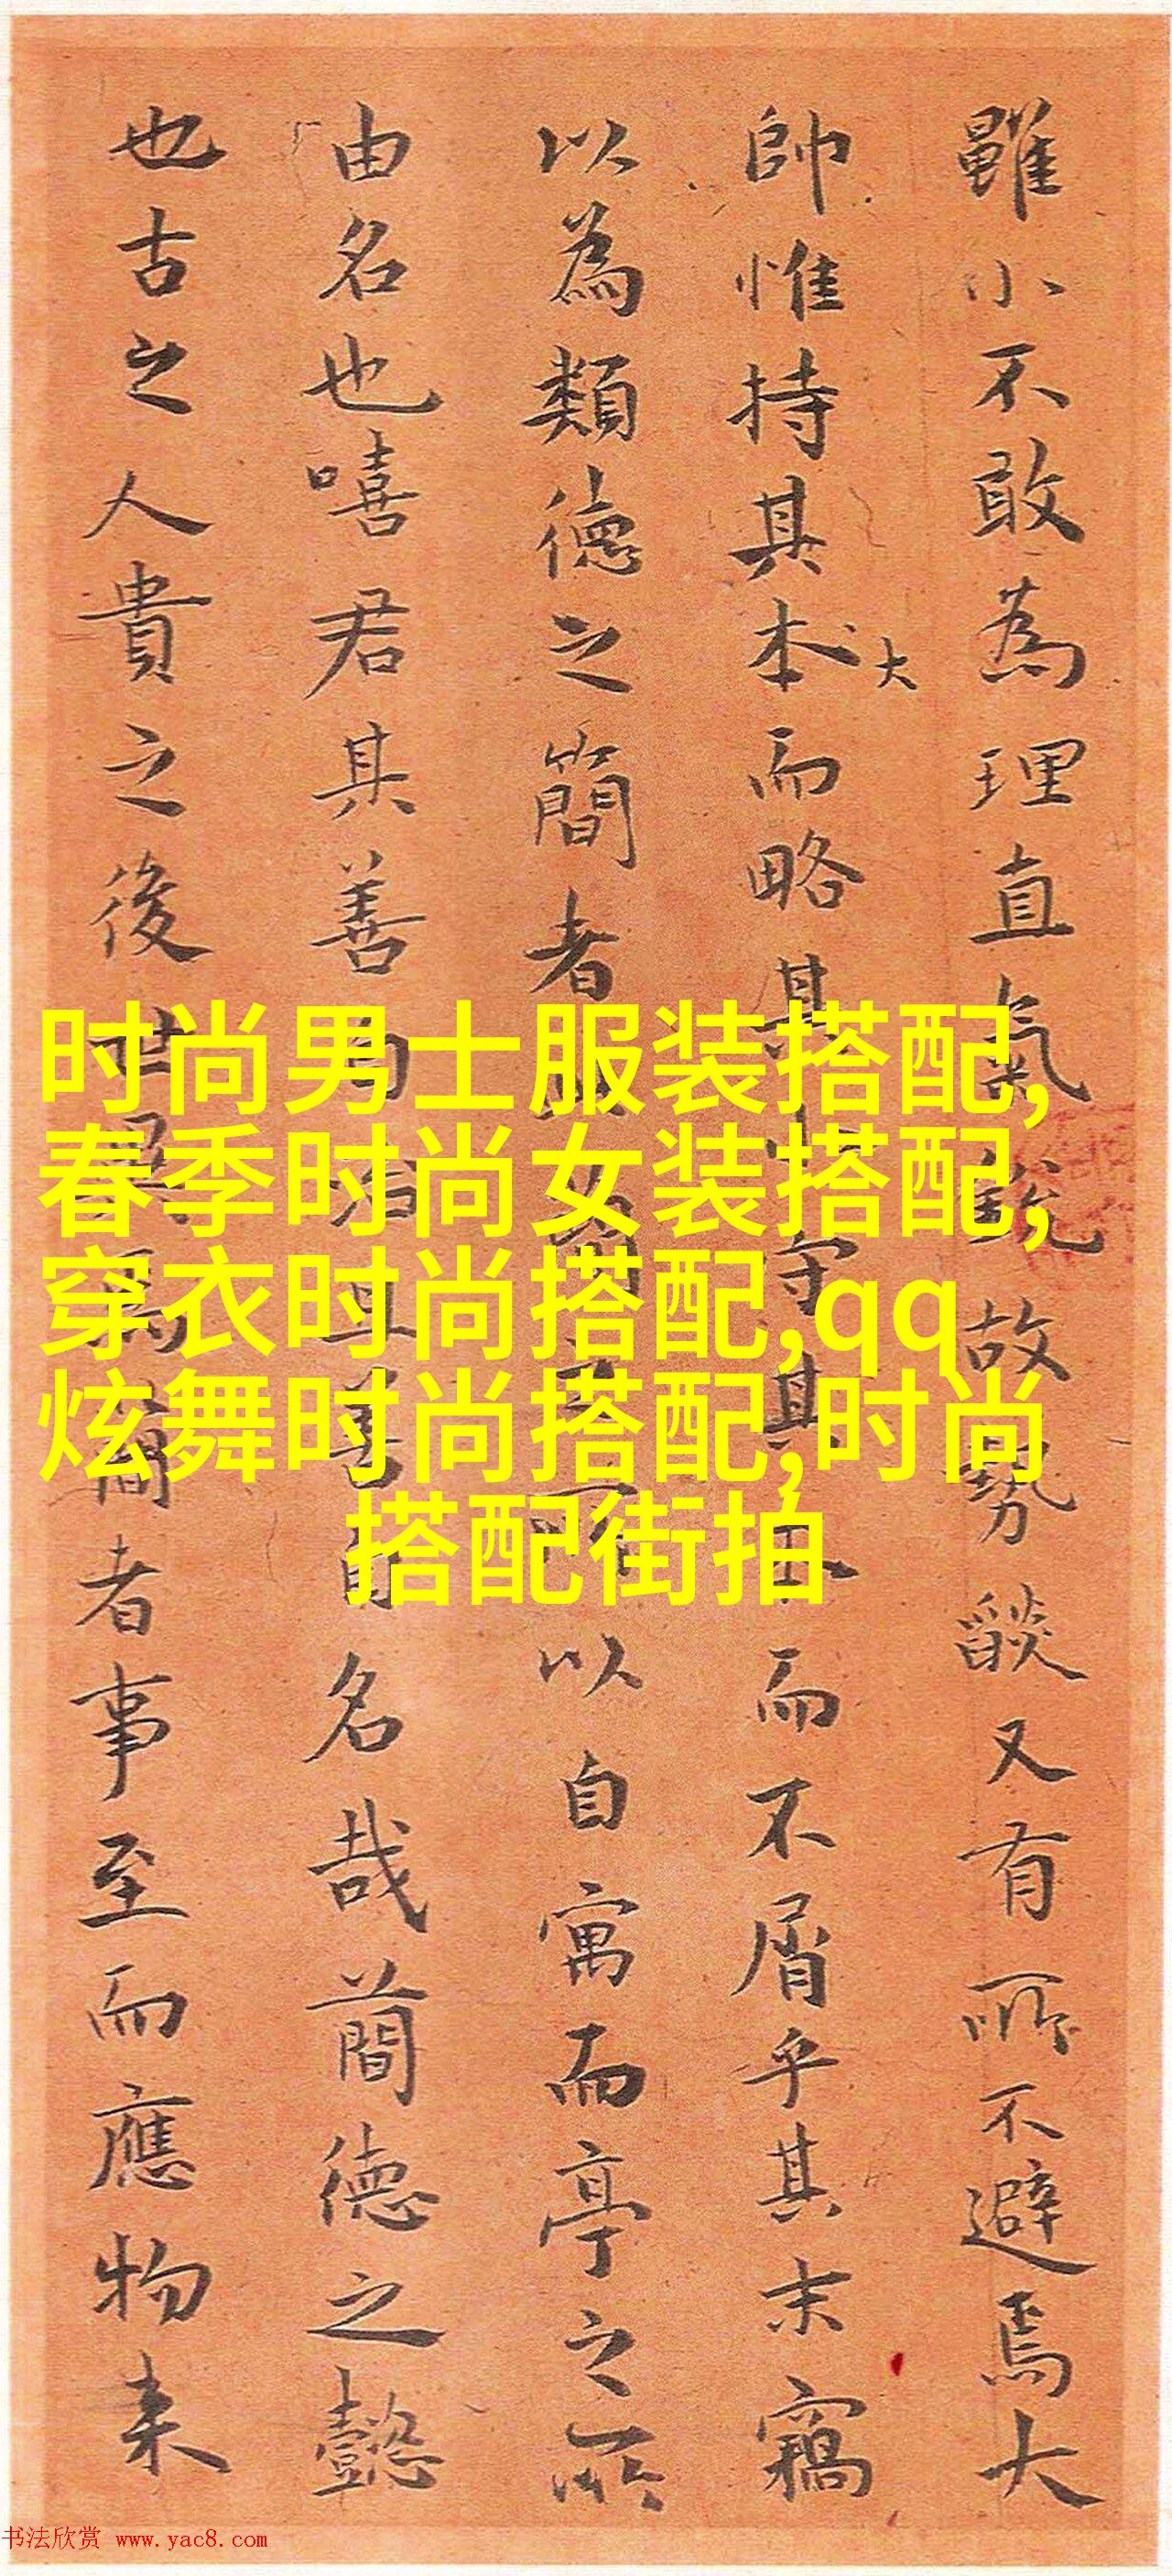 雖小不敢為理直氣銳故勢燄又有所不避焉大
帥惟持其本大而略其小守其而不屑乎其末竊
以為類德之簡者為以自寓而亭之所
由名也嘻君其善而且善自名哉簡德之懿
也古之人貴之後世為簡者事至而應物来
时尚男士服装搭配,
春季时尚女装搭配,
穿衣时尚搭配,qq
炫舞时尚搭配,时尚
搭配街拍
书法欣赏 www.yac8.com